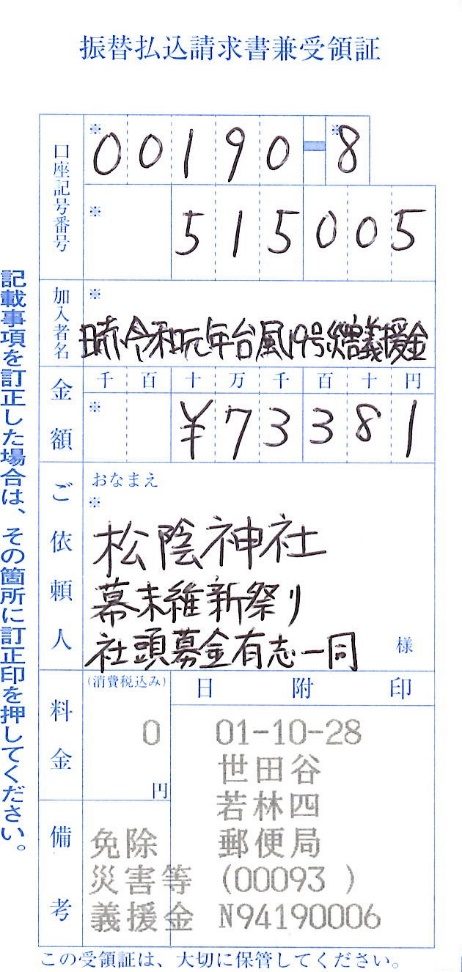 振替払込請求書兼受領証
口座記号番号
※ 00190-※8
※ 515005
加入者名
※
日赤令和元年台風19号災害義援金
金額
千 百 十 万 千 百 十 円
※ ¥73381
ご依頼人
おなまえ
※
松陰神社
幕末維新祭り
社頭募金有志一同 様
料金
(消費税込み)
0
円
日附印
01-10-28
世田谷
若林四
郵便局
(00093 )
N94190006
備考
免除
災害等
義援金
この受領証は、大切に保管してください。
記載事項を訂正した場合は、その箇所に訂正印を押してください。